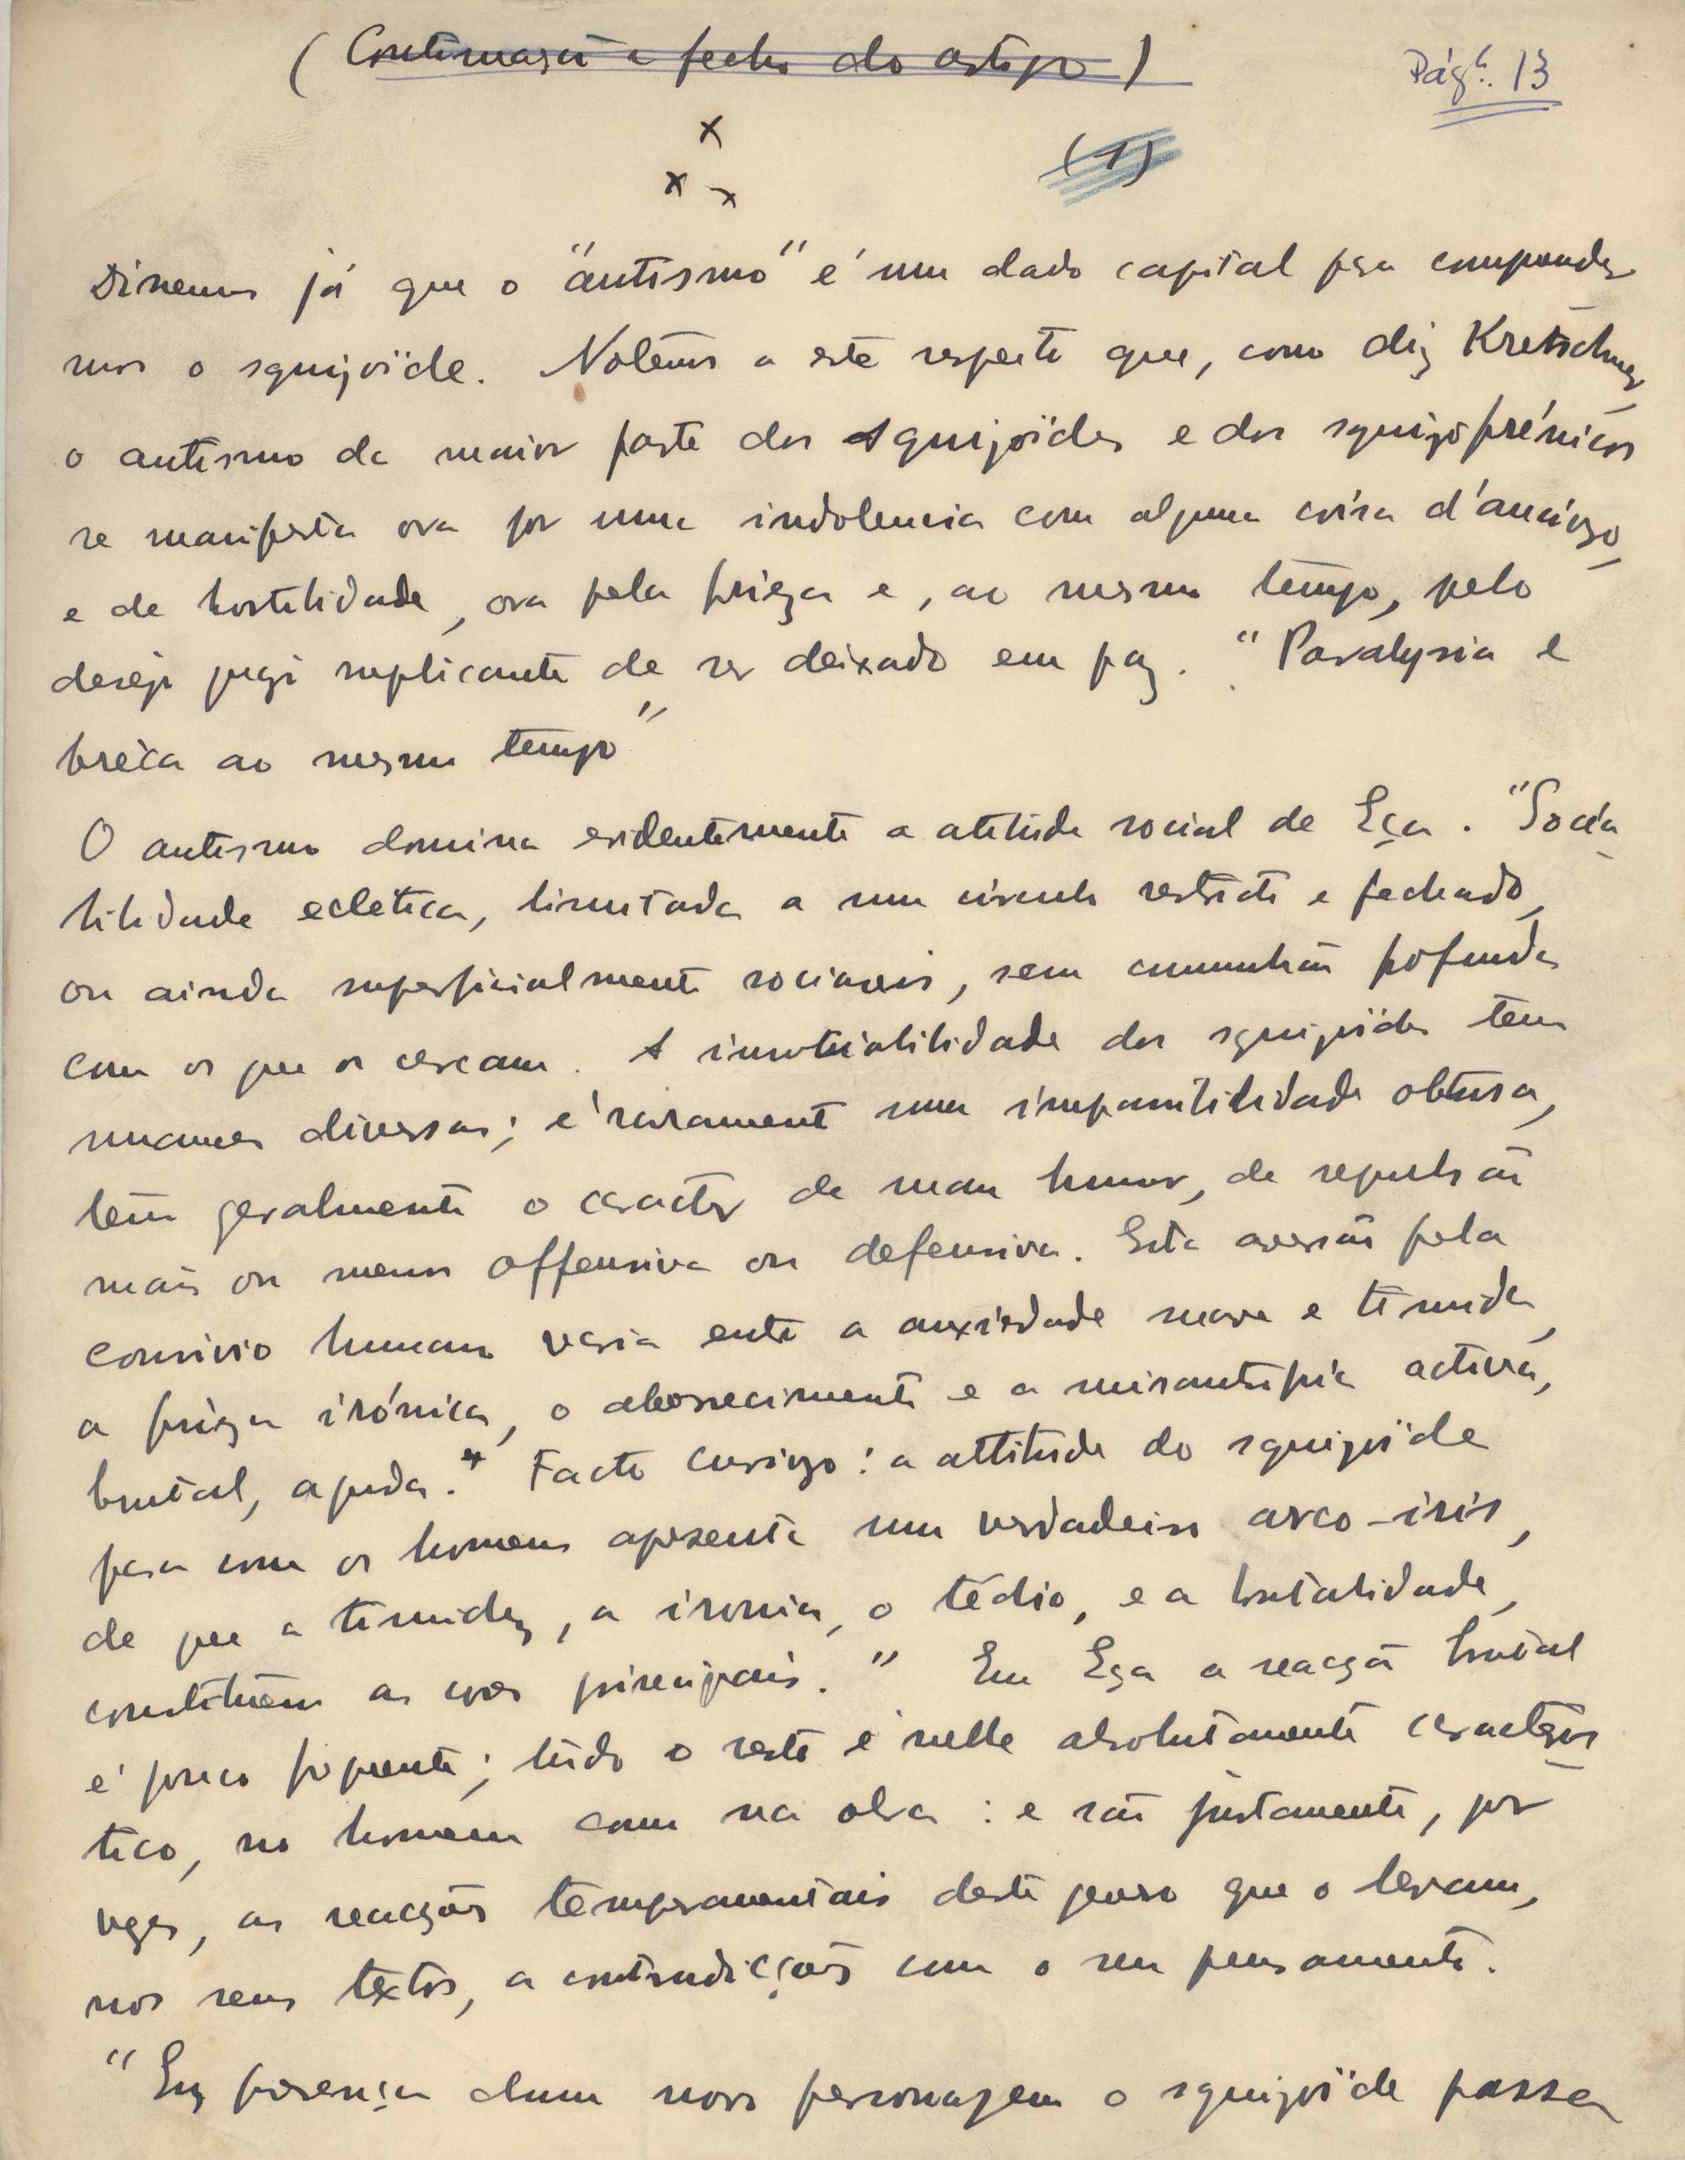 (Continuação e fecho do artigo)
Pág. 13
x
x x
(1)
Dissemos já que o "autismo" é um dado capital pra comprender
mos o squizoïde. Notemos a este respeito que, como diz Kretschmer,
o autismo da maior parte dos squizoïdes e dos squizofrénicos
se manifesta ora por uma indolencia com alguma coisa d'ancioso
e de hostilidade, ora pela frieza e, ao mesmo tempo, pelo
desejo suplicante de ser deixado em paz. "Paralysia e
breca ao mesmo tempo"
O autismo domina evidentemente a atitude social de Eça. "Socia
bilidade eclética, limitada a um circulo restricto e fechado,
ou ainda superficialmente sociaveis, sem comunhão profunda
com os que os cercam. A insociabilidade dos squizoïdes tem
nuances diversas; é raramente uma impassibilidade obtusa,
tem geralmente o caracter de mau humor, de repulsão
mais ou menos offensiva ou defensiva. Esta aversão pela
convivio humano varia entre a anxiedade suave e timida,
a frieza irónica, o aborrecimento e a misantropia activa,
brutal, aguda." Facto curioso: a attitude do squizoïde
para com os homens apresenta um verdadeiro arco-iris,
de que a timidez, a ironia, o tédio, e a brutalidade,
constituem as cores principais." Em Eça a reacção brutal
é pouco frequente; tudo o resto é nelle absolutamente caracteris
tico, no homem como na obra: e são justamente, por
vezes, as reacções temperamentais deste genero que o levam,
nos seus textos, a contradicções com o seu pensamento.
"Em presença dum novo personagem o squizoïde passa